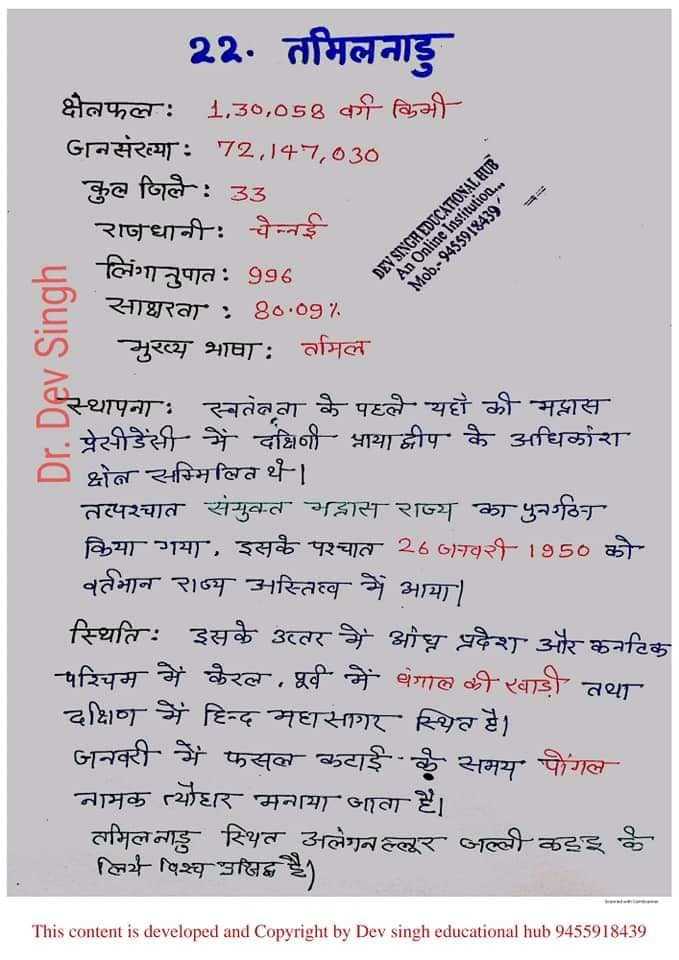 22. तमिलनाडु
क्षेत्रफल: 1,30,058 वर्ग किमी
जनसंख्या: 72,147,030
कुल जिले: 33
राजधानी: चेन्नई
लिंगानुपात: 996
साक्षरता: 80.09%
मुख्य भाषा: तमिल
DEV SINGH EDUCATIONAL HUB
An Online Institution...
Mob.- 9455918439'
Dr. Dev Singh
स्थापना: स्वतंत्रता के पहले यहाँ की मद्रास
प्रेसीडेंसी में दक्षिणी प्रायाद्वीप के अधिकांश
क्षेत्र सम्मिलित थे।
तत्पश्चात संयुक्त मद्रास राज्य का पुनर्गठन
किया गया, इसके पश्चात 26 जनवरी 1950 को
वर्तमान राज्य अस्तित्व में आया।
स्थिति: इसके उत्तर में आंध्र प्रदेश और कर्नाटक
पश्चिम में केरल, पूर्व में बंगाल की खाड़ी तथा
दक्षिण में हिन्द महासागर स्थित है।
जनवरी में फसल कटाई के समय पोंगल
नामक त्यौहार मनाया जाता है।
तमिलनाडु स्थित अलेगनल्लूर जल्ली कडइ के
लिये विश्व प्रसिद्ध है)
Scanned with CamScanner
This content is developed and Copyright by Dev singh educational hub 9455918439